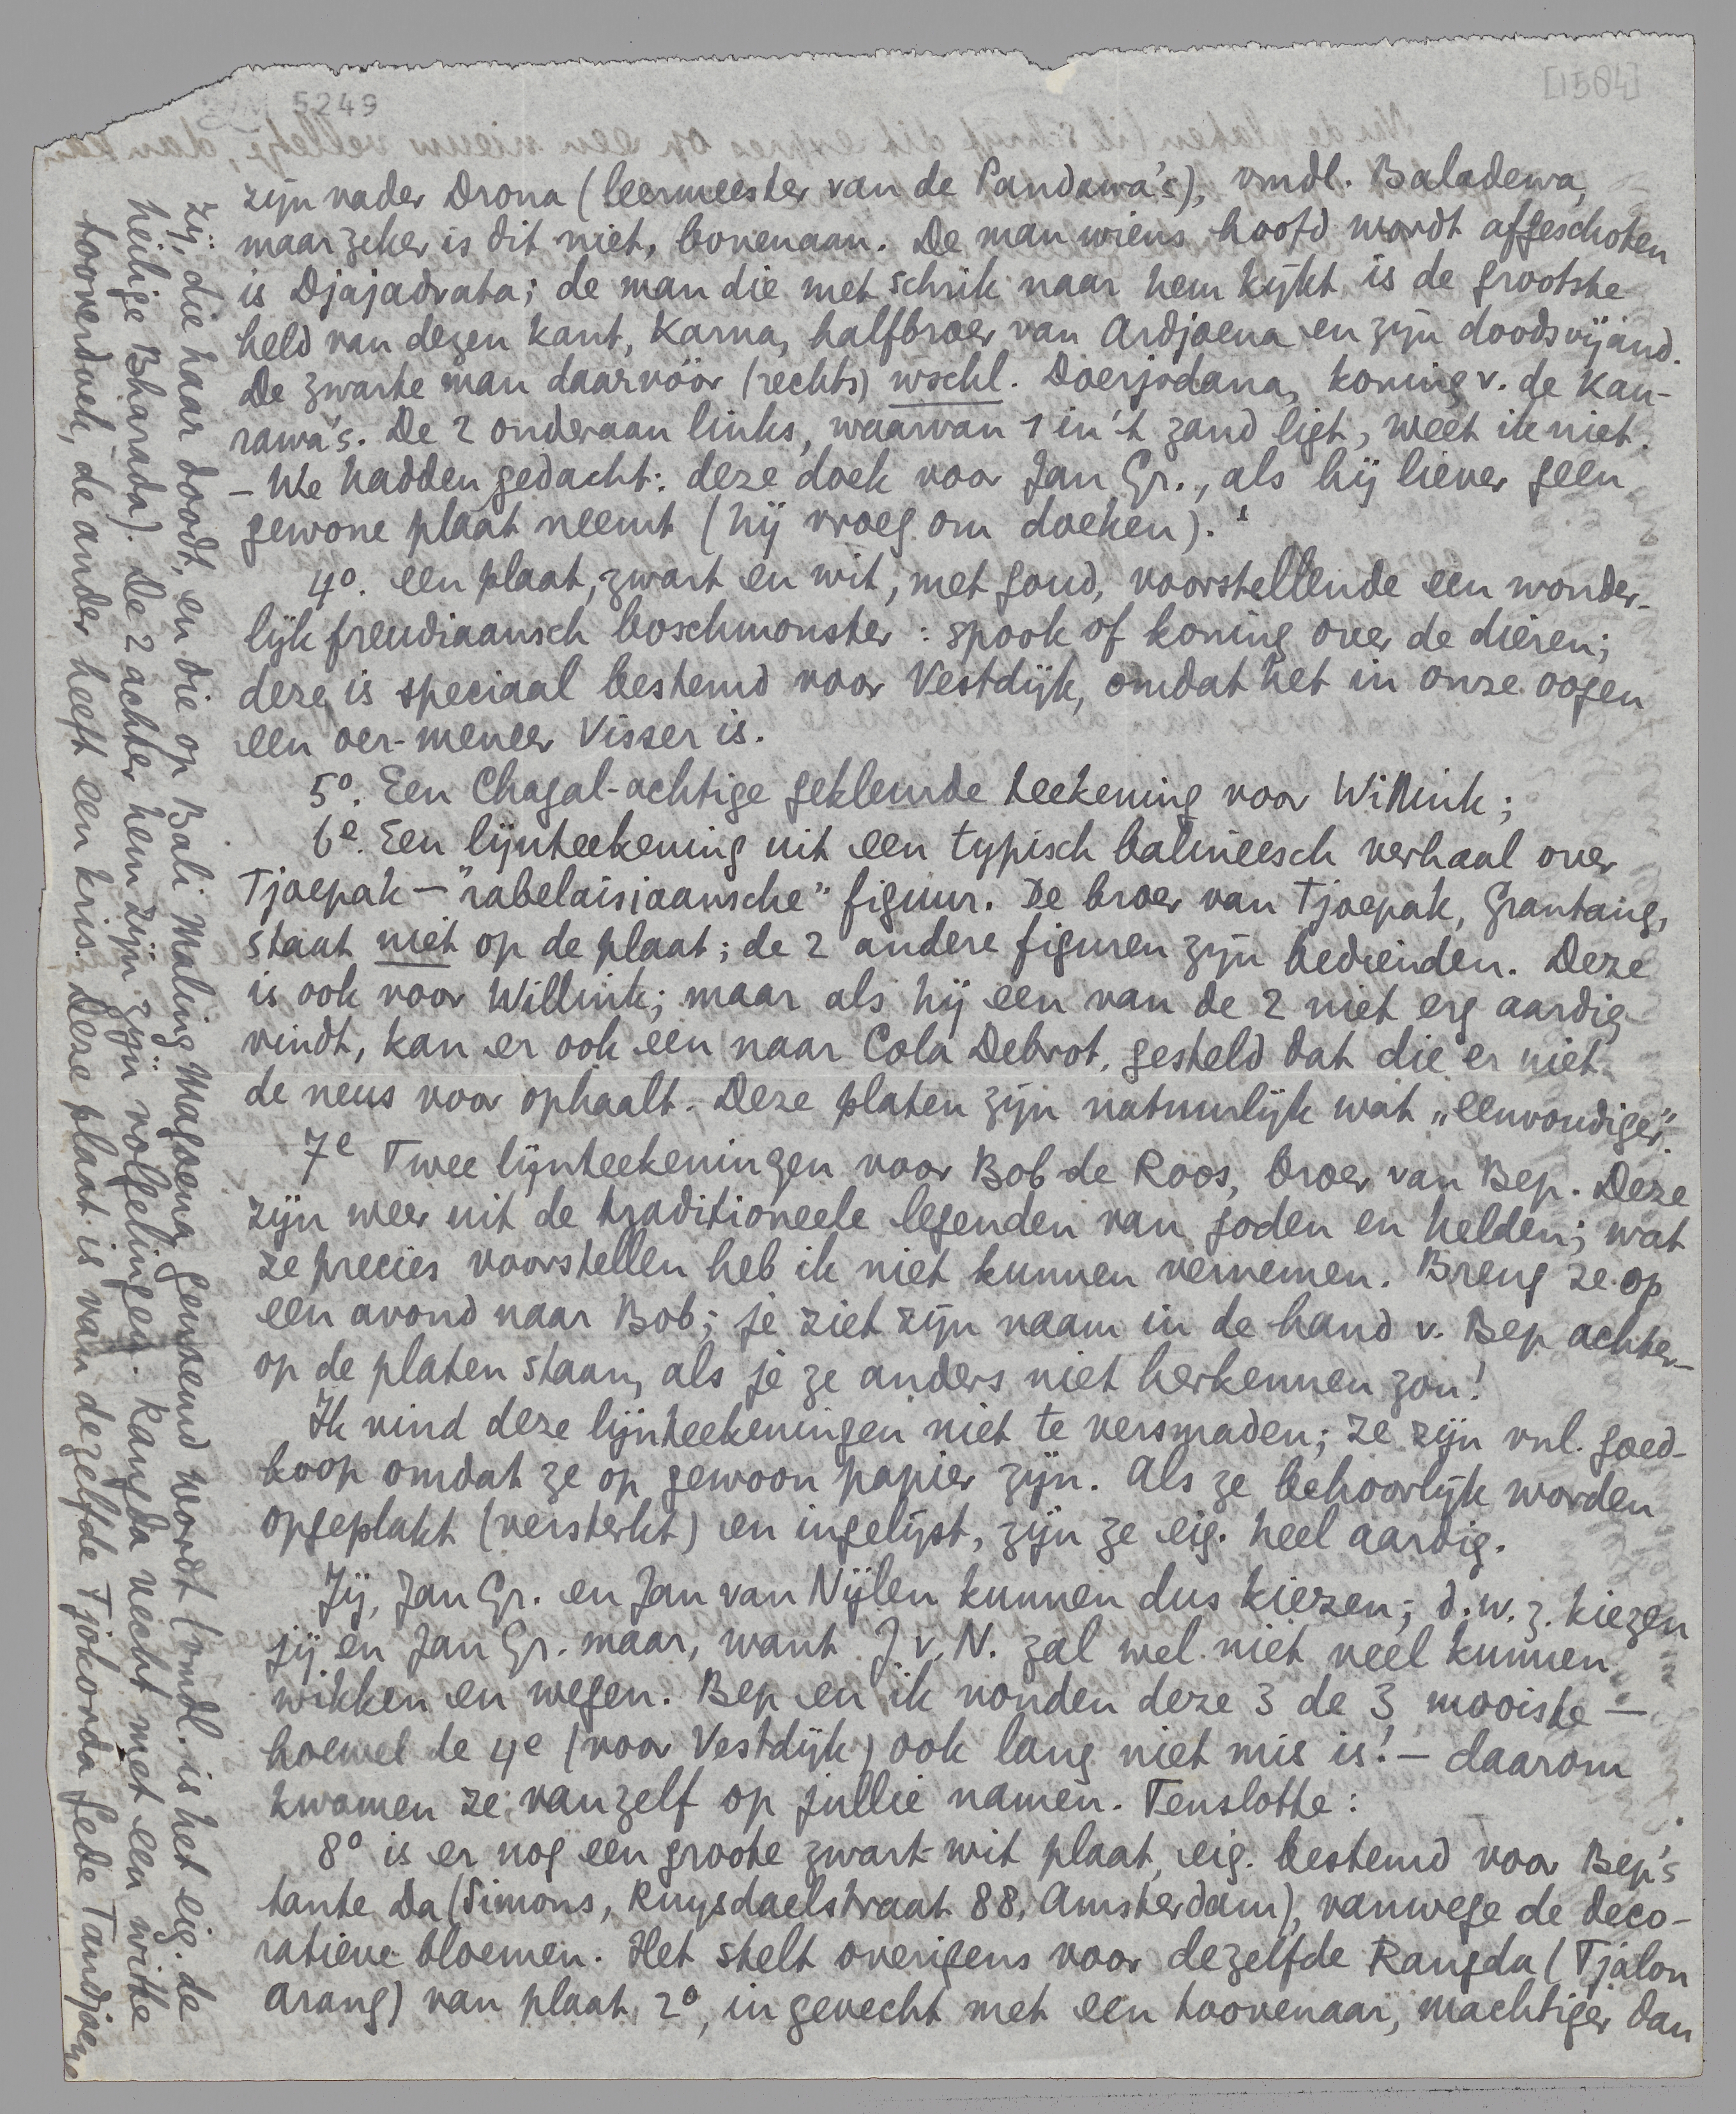 5249
[1504]
zijn vader Drona (leermeester van de Pandawa's), vmdl. Baladewa,
maar zeker is dit niet, bovenaan. De man wiens hoofd wordt afgeschoten
is Djajadrata; de man die met schrik naar hem kijkt is de grootste
held van dezen kant, Karna, halfbroer van Ardjoena en zijn doodsvijand.
De zwarte man daarvóór (rechts) wschl. Doerjodana, koning v. de Kau-
rawa's. De 2 onderaan links, waarvan 1 in 't zand ligt, weet ik niet.
– We hadden gedacht: deze doek voor Jan Gr., als hij liever geen
gewone plaat neemt (hij vroeg om doeken).
4o. een plaat, zwart en wit, met goud, voorstellende een wonder-
lijk freudiaansch boschmonster: spook of koning over de dieren;
deze is speciaal bestemd voor Vestdijk, omdat het in onze oogen
een oer-meneer Visser is.
5o. Een Chagal-achtige gekleurde teekening voor Willink;
6e. Een lijnteekening uit een typisch balineesch verhaal over
Tjoepak – "rabelaisiaansche" figuur. De broer van Tjoepak, Grantang,
staat niet op de plaat; de 2 andere figuren zijn bedienden. Deze
is ook voor Willink; maar als hij een van de 2 niet erg aardig
vindt, kan er ook een naar Cola Debrot, gesteld dat die er niet
de neus voor ophaalt. Deze platen zijn natuurlijk wat „eenvoudiger".
7e Twee lijnteekeningen voor Bob de Roos, broer van Bep. Deze
zijn weer uit de traditioneele legenden van goden en helden; wat
ze precies voorstellen heb ik niet kunnen vernemen. Breng ze op
een avond naar Bob; je ziet zijn naam in de hand v. Bep achter-
op de platen staan, als je ze anders niet herkennen zou!
Ik vind deze lijnteekeningen niet te versmaden; ze zijn vnl. goed-
koop omdat ze op gewoon papier zijn. Als ze behoorlijk worden
opgeplakt (versterkt) en ingelijst, zijn ze eig. heel aardig.
Jij, Jan Gr. en Jan van Nijlen kunnen dus kiezen; d.w.z. kiezen
jij en Jan Gr. maar, want J.v.N. zal wel niet veel kunnen
wikken en wegen. Bep en ik vonden deze 3 de 3 mooiste –
hoewel de 4e (voor Vestdijk) ook lang niet mis is! – daarom
kwamen ze vanzelf op jullie namen. Tenslotte:
8o is er nog een groote zwart-wit plaat, eig. bestemd voor Bep's
tante Da (Simons, Ruysdaelstraat 88, Amsterdam), vanwege de deco-
ratieve bloemen. Het stelt overigens voor dezelfde Rangda (Tjalon
Arang) van plaat 2o, in gevecht met een toovenaar, machtiger dan
zij, die haar doodt, en die op Bali Maling Magoena genoemd wordt (vmdl. is het eig. de
heilige Bharada). De 2 achter hem zijn zijn volgelingen. Rangda vecht met een witte
tooverdoek, de ander heeft een kris. Deze plaat is van dezelfde Tjokorda Gede Tandjoeng